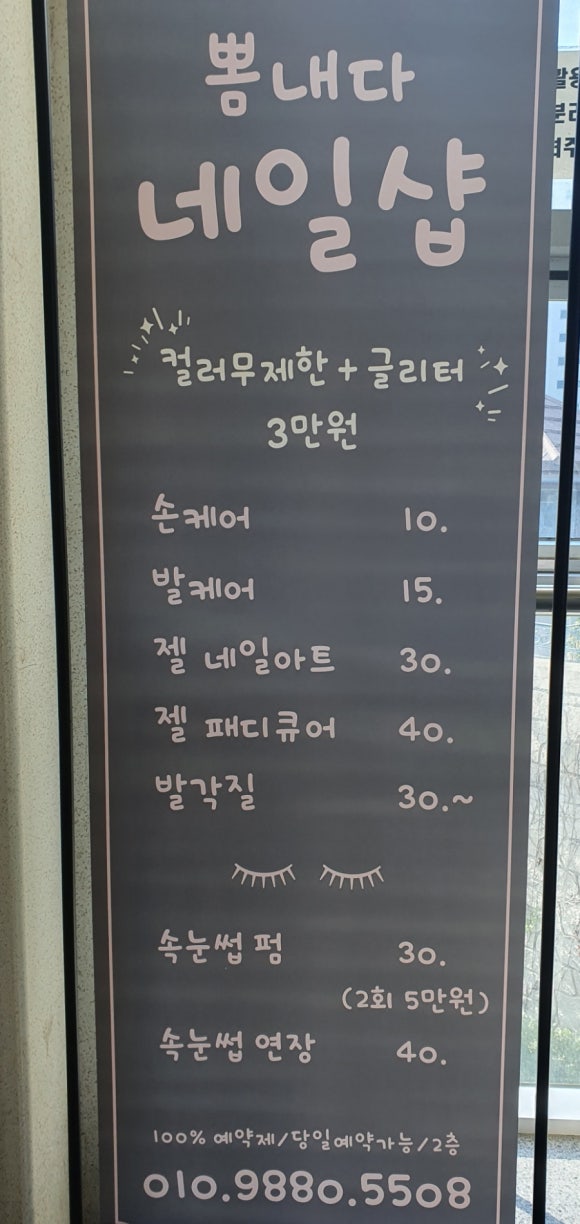 뽐내다
네일샵
컬러무제한 + 글리터
3만원
손케어 10.
발케어 15.
젤 네일아트 30.
젤 패디큐어 40.
발각질 30.~
속눈썹 펌 30.
(2회 5만원)
속눈썹 연장 40.
100% 예약제/당일예약가능/2층
010.9880.5508